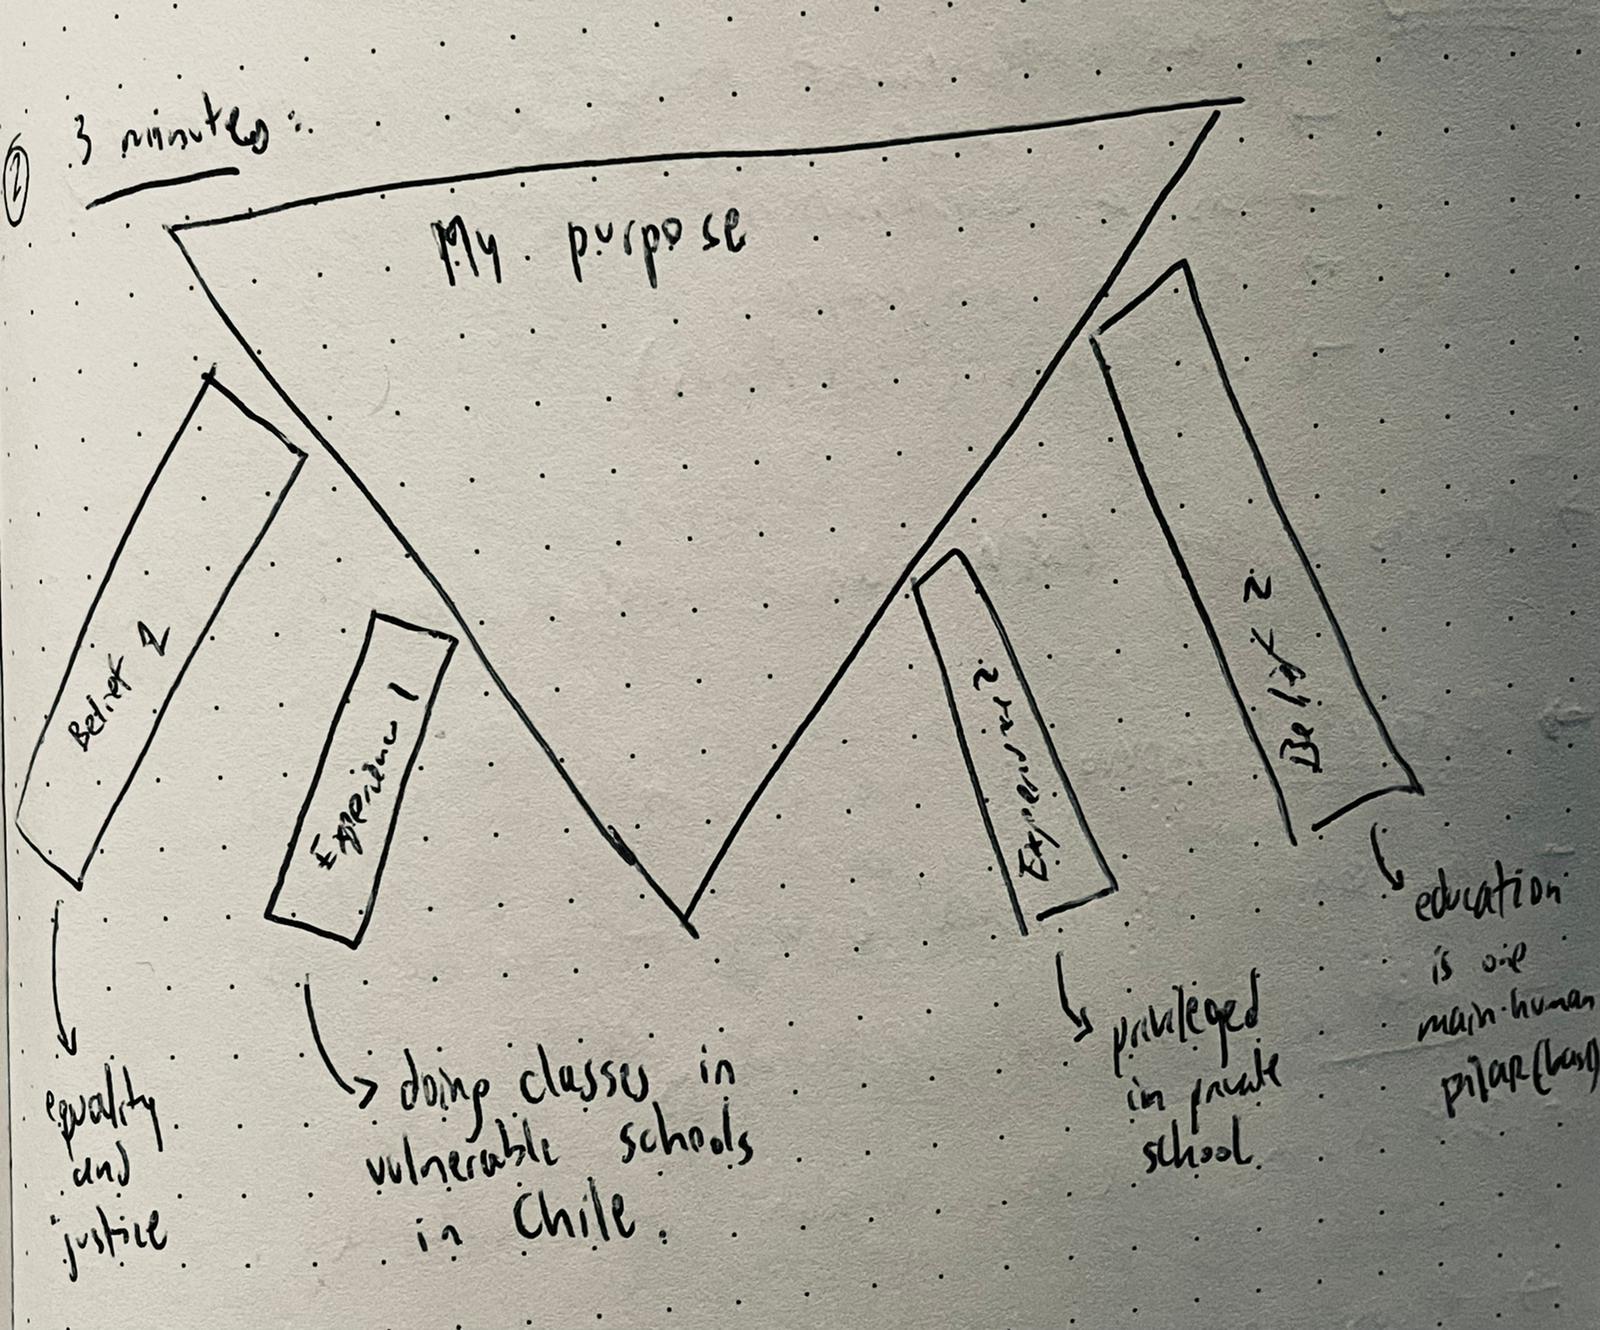 2
3 minutes:
My purpose
Belief 1
Experience 1
Experience 2
Belief 2
equality
and
justice
doing classes in
vulnerable schools
in Chile.
privileged
in private
school.
education
is one
main human
pilar (base)